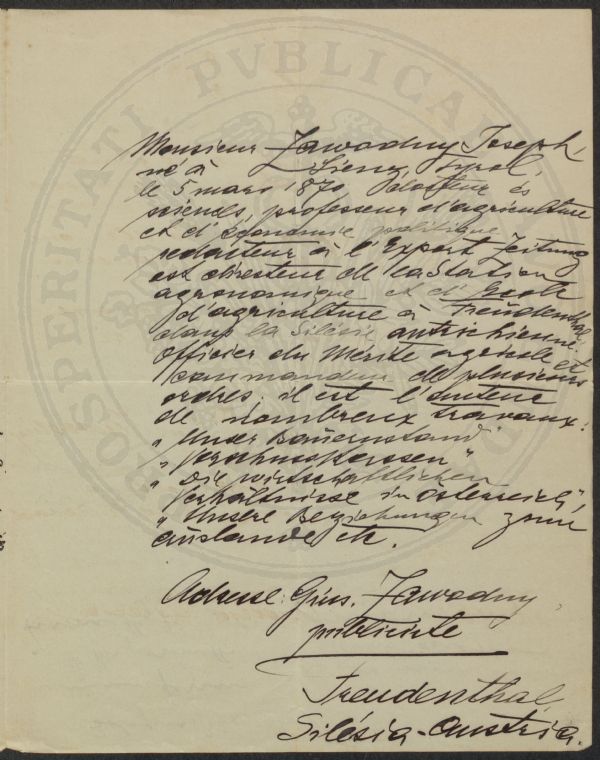 PROSPERITATI PVBLICAE
Monsieur Zawodny Joseph,
né à Lienz, Tyrol,
le 5 mars 1870, Docteur ès
sciences, professeur d'agriculture
et d'Economie politique
redacteur à l'Export Zeitung
est directeur de la Station
agronomique et d'Ecole
d'agriculture à Freudenthal,
dans la Silésie autrichienne.
Officier du Mérite agricole et
commandeur de plusieurs
ordres, il est l'auteur
de nombreux travaux:
„Unser Bauernstand"
„Vorschusskassen"
„Die wirtschaftlichen
Verhältnisse in Österreich",
„Unsere Beziehungen zum
Auslande etc.
Adresse: Gius. Zawodny,
publiciste
Freudenthal
Silésia-Austria.